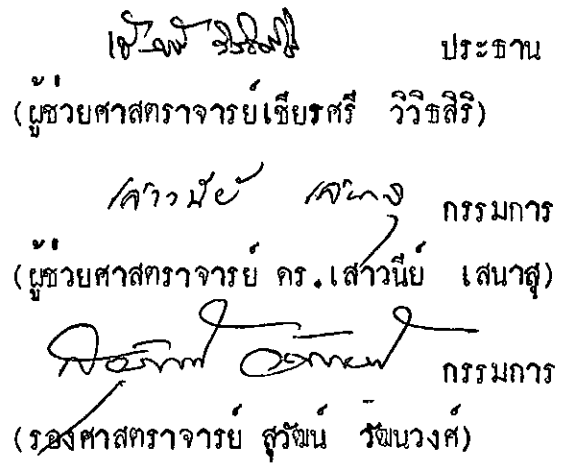 ประธาน
(ผู้ช่วยศาสตราจารย์เชียรศรี วิวิธสิริ)
เสาวนีย์ เสนาสุ กรรมการ
(ผู้ช่วยศาสตราจารย์ ดร.เสาวนีย์ เสนาสุ)
กรรมการ
(รองศาสตราจารย์ สุวัฒน์ วัฒนวงศ์)